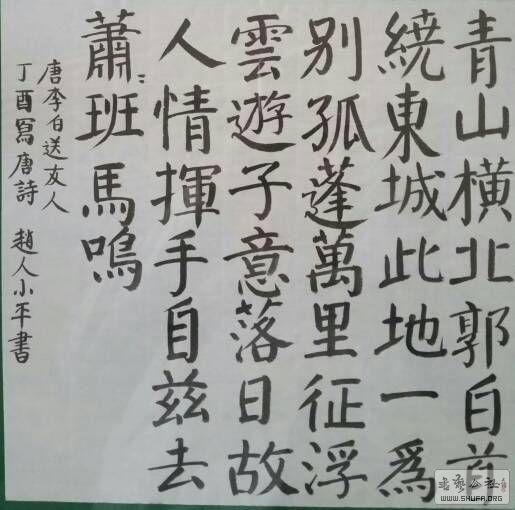 青山橫北郭白首
繞東城此地一爲
别孤蓬萬里征浮
雲遊子意落日故
人情揮手自茲去
蕭〻班馬鳴
唐李白送友人
丁酉寫唐詩 趙人小平書
書藝公社
WWW.SHUFA.ORG